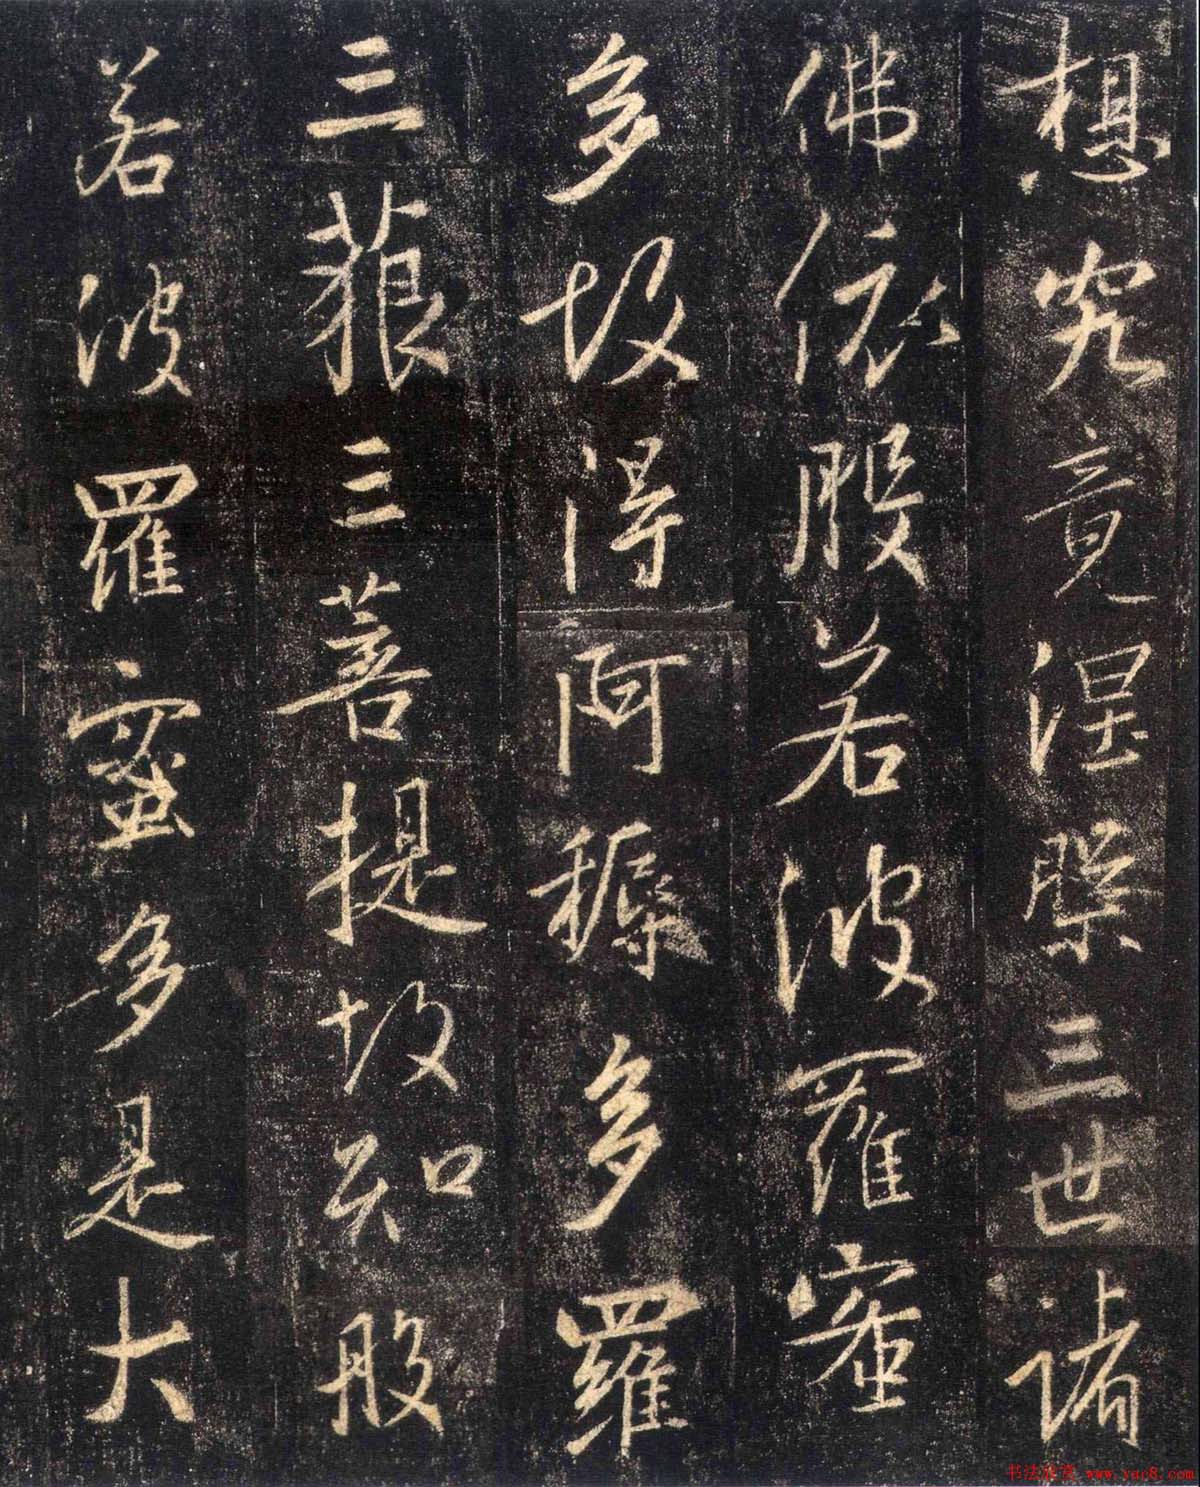 想究竟涅槃三世諸
佛依般若波羅蜜
多故得阿耨多羅
三藐三菩提故知般
若波羅蜜多是大
书法欣赏 www.yac8.com